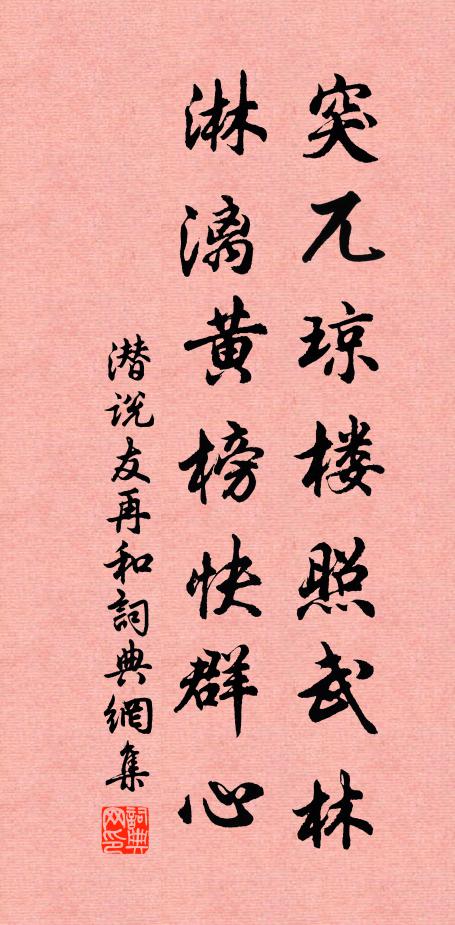 突兀琼楼照武林
淋漓黄榜快群心
潜说友再和詞典網集
詞典网印